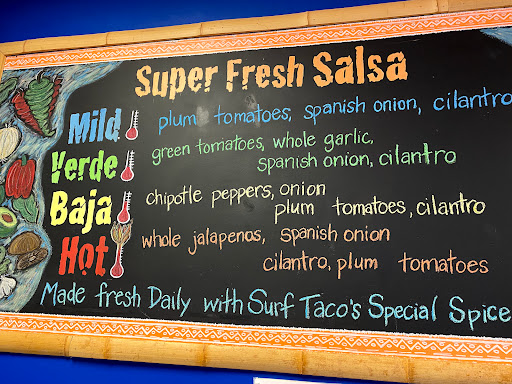 Super Fresh Salsa
Mild plum tomatoes, spanish onion, cilantro
Verde green tomatoes, whole garlic,
spanish onion, cilantro
Baja chipotle peppers, onion
plum tomatoes, cilantro
Hot whole jalapenos, spanish onion
cilantro, plum tomatoes
Made fresh Daily with Surf Taco's Special Spice